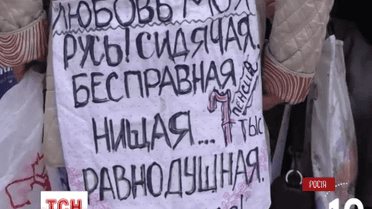 ЛЮБОВЬ МОЯ
РУСЬ! СИДЯЧАЯ.
БЕСПРАВНАЯ
НИЩАЯ... 7 ТЫС
ПЕНСИЯ
РАВНОДУШНАЯ.
ТСН
РОСІЯ